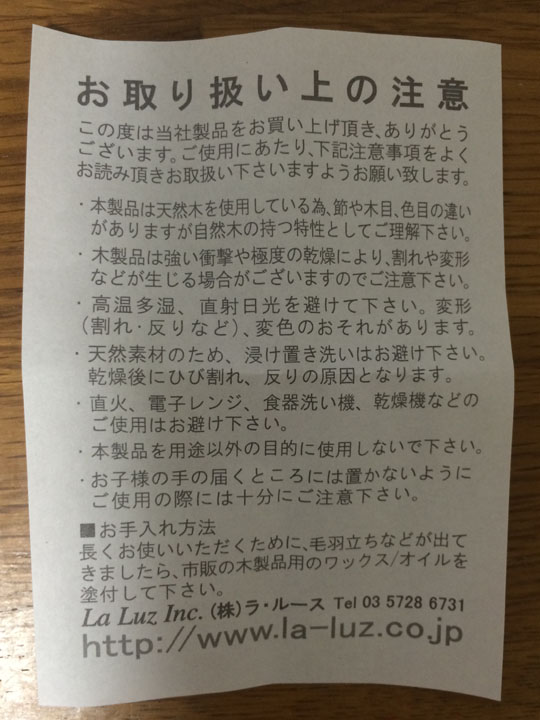 お取り扱い上の注意
この度は当社製品をお買い上げ頂き、ありがとう
ございます。ご使用にあたり、下記注意事項をよく
お読み頂きお取扱い下さいますようお願い致します。
・本製品は天然木を使用している為、節や木目、色目の違い
がありますが自然木の持つ特性としてご理解下さい。
・木製品は強い衝撃や極度の乾燥により、割れや変形
などが生じる場合がございますのでご注意下さい。
・高温多湿、直射日光を避けて下さい。変形
(割れ・反りなど)、変色のおそれがあります。
・天然素材のため、浸け置き洗いはお避け下さい。
乾燥後にひび割れ、反りの原因となります。
・直火、電子レンジ、食器洗い機、乾燥機などの
ご使用はお避け下さい。
・本製品を用途以外の目的に使用しないで下さい。
・お子様の手の届くところには置かないように
ご使用の際には十分にご注意下さい。
■お手入れ方法
長くお使いいただくために、毛羽立ちなどが出て
きましたら、市販の木製品用のワックス/オイルを
塗付して下さい。
La Luz Inc. (株)ラ・ルース Tel 03 5728 6731
http://www.la-luz.co.jp